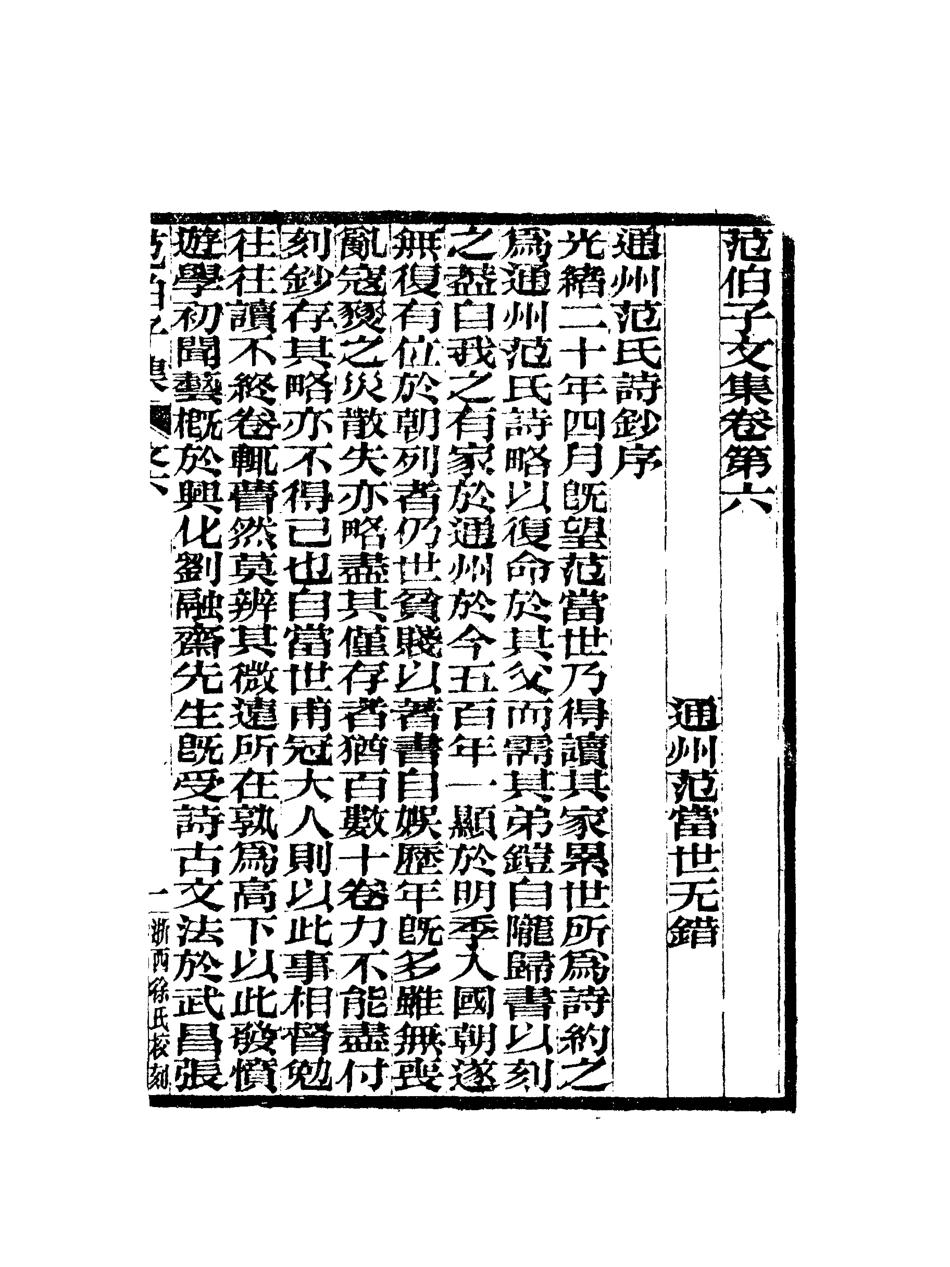 范伯子文集卷第六
通州范當世无錯
通州范氏詩鈔序
光緒二十年四月既望范當世乃得讀其家累世所爲詩約之
爲通州范氏詩略以復命於其父而需其弟鎧自隴歸書以刻
之盡自我之有家於通州於今五百年一顯於明季入國朝遂
無復有位於朝列者仍世貧賤以著書自娛歷年既多雖無喪
亂寇燹之災散失亦略盡其僅存者猶百數十卷力不能盡付
刻鈔存其略亦不得已也自當世甫冠大人則以此事相督勉
往往讀不終卷輒瞢然莫辨其微遠所在孰爲高下以此發憤
遊學初聞藝槪於興化劉融齋先生既受詩古文法於武昌張
范伯子集 文六 一 浙西徐氏校刻